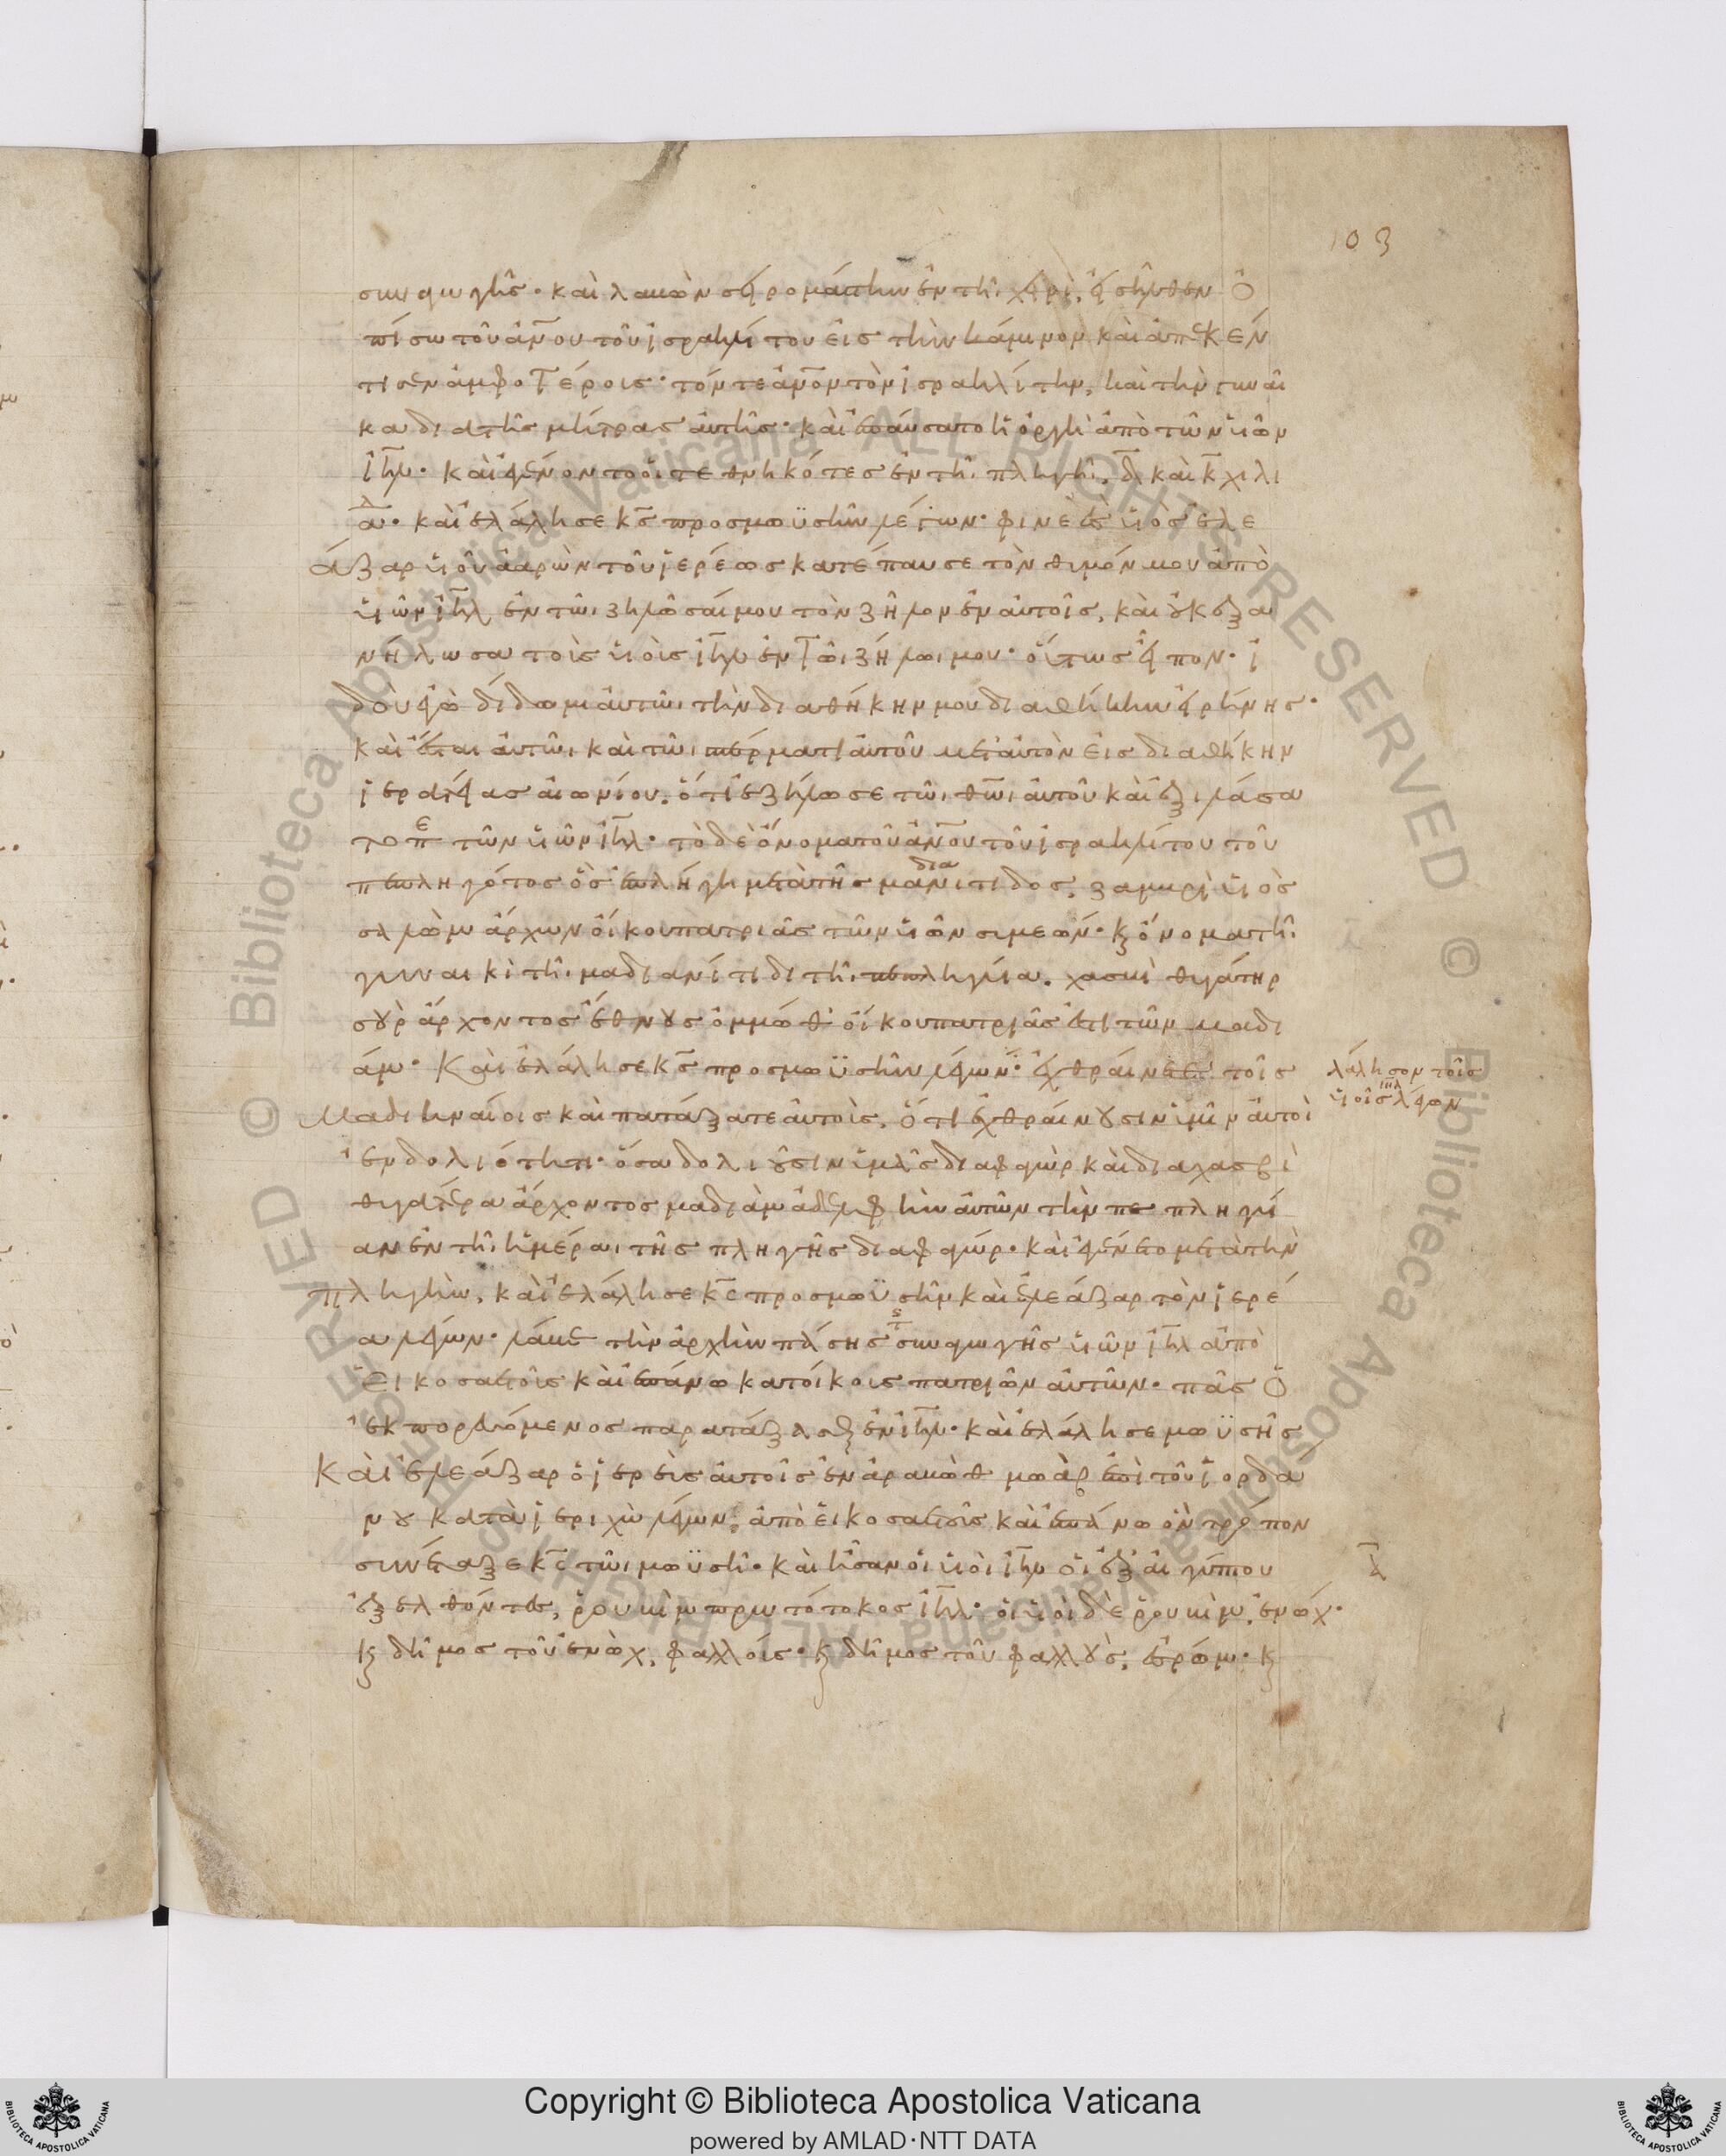 103
συναγωγῆς· καὶ λαβὼν σειρομάστην ἐν τῆι χειρὶ, εἰσῆλθεν ὀ
πίσω τοῦ ἀν̅ου τοῦ ἰσραηλίτου εἰς τὴν κάμινον καὶ ἀπεκέν
τισεν ἀμφοτέροις· τόν τε ἀν̅ον τὸν ἰσραηλίτην, καὶ τὴν γυναῖ
κα διατῆς μήτρας αὐτῆς· καὶ ἐπαύσατο ἡ ὀργὴ ἀπὸ τῶν υἱῶν
ἰη̅λ· καὶ ἐγένοντο οἱ τεθνηκότες ἐν τῆι πληγῆι, δ̅ καὶ κ̅ χιλι
α̅δ· καὶ ἐλάλησε κ̅ς προς μωϋσῆν λέγων· φινεὲς υἱὸς ἐλε
άζαρ υἱοῦ ἀαρὼν τοῦ ἱερέως κατέπαυσε τὸν θυμόν μου ἀπὸ
υἱῶν ἰη̅λ ἐν τῶι ζηλῶσαί μου τὸν ζῆλον ἐν αὐτοῖς, καὶ οὐκ ἐξα
νήλωσα τοὺς υἱοὺς ἰη̅λ ἐν τῶι ζήλωι μου· οὕτως εἶπον· ἰ
δοὺ ἐγὼ δίδωμι αὐτῶι τὴν διαθήκην μου διαθήκην εἰρήνης·
καὶ ἔσται αὐτῶι καὶ τῶι σπέρματι αὐτοῦ μετ' αὐτὸν εἰς διαθήκην
ἱερατείας αἰωνίου, ὅτι ἐζήλωσε τῶι θ̅ωι αὐτοῦ καὶ ἐξιλάσα
το πε τῶν υἱῶν ἰη̅λ· τὸ δὲ ὄνομα τοῦ ἀν̅ου τοῦ ἰσραηλίτου τοῦ
πεπληγότος ὃς ἐπλήγη μετὰ τῆς μαδιανίτιδος, ζαμρὶ υἱὸς
σαλὼμ ἄρχων οἴκου πατριᾶς τῶν υἱῶν συμεών· κ̣ ὄνομα τῆι
γυναικὶ τῆι μαδιανίτιδι τῆι πεπληγυία, χασβὶ θυγάτηρ
σοὺρ ἄρχοντος ἔθνους ὀμμὼθ οἴκου πατριᾶς ἐστι τῶν μαδι
άμ· καὶ ἐλάλησε κ̅ς προς μωϋσῆν λέγων· ἐχθραίνετε τοῖς
μαδιηναίοις καὶ πατάξατε αὐτοὺς, ὅτι ἐχθραίνουσιν ὑμῖν αὐτοὶ
ἐν δολιότητι· ὅσα δολιοῦσιν ὑμᾶς διαφογὼρ καὶ διαχασβὶ
θυγατέρα ἄρχοντος μαδιὰμ ἀδελφὴν αὐτῶν τὴν πεπληγυῖ
αν ἐν τῆι ἡμέραι τῆς πληγῆς διαφογώρ· καὶ ἐγένετο μετὰ τὴν
πληγὴν, καὶ ἐλάλησε κ̅ς προς μωϋσῆν καὶ ἐλεάζαρ τὸν ἱερέ
α λέγων· λάβε τὴν ἀρχὴν πάσης συναγωγῆς υἱῶν ἰη̅λ ἀπὸ
εἰκοσαετοῦς καὶ ἐπάνω κατοίκοις πατριῶν αὐτῶν· πᾶς ὁ
ἐκπορευόμενος παρατάξασθαι ἐν ἰη̅λ· καὶ ἐλάλησε μωϋσῆς
καὶ ἐλεάζαρ ὁ ἱερεὺς αὐτοῖς ἐν ἀραβὼθ μωὰβ ἐπὶ τοῦ ἰορδα
νου κατὰ ἱεριχὼ λέγων, ἀπὸ εἰκοσαετοῦς καὶ ἐπάνω ὃν τρόπον
συνέταξε κ̅ς τῶι μωϋσῆ· καὶ ἦσαν οἱ υἱοὶ ἰη̅λ οἱ ἐξ αἰγύπτου
ἐξελθόντες, ῥουβὶμ πρωτότοκος ἰη̅λ· οἱ υἱοὶ δὲ ῥουβὶμ, ἐνώχ·
κ̣ δῆμος τοῦ ἐνὼχ, φαλλούς· κ̣ δῆμος τοῦ φαλλοὺς, ἐσρώμ· κ̣
λάλησον τοῖς
υἱοῖς ἰηλ λέγων
λ̅
Copyright © Biblioteca Apostolica Vaticana
powered by AMLAD·NTT DATA